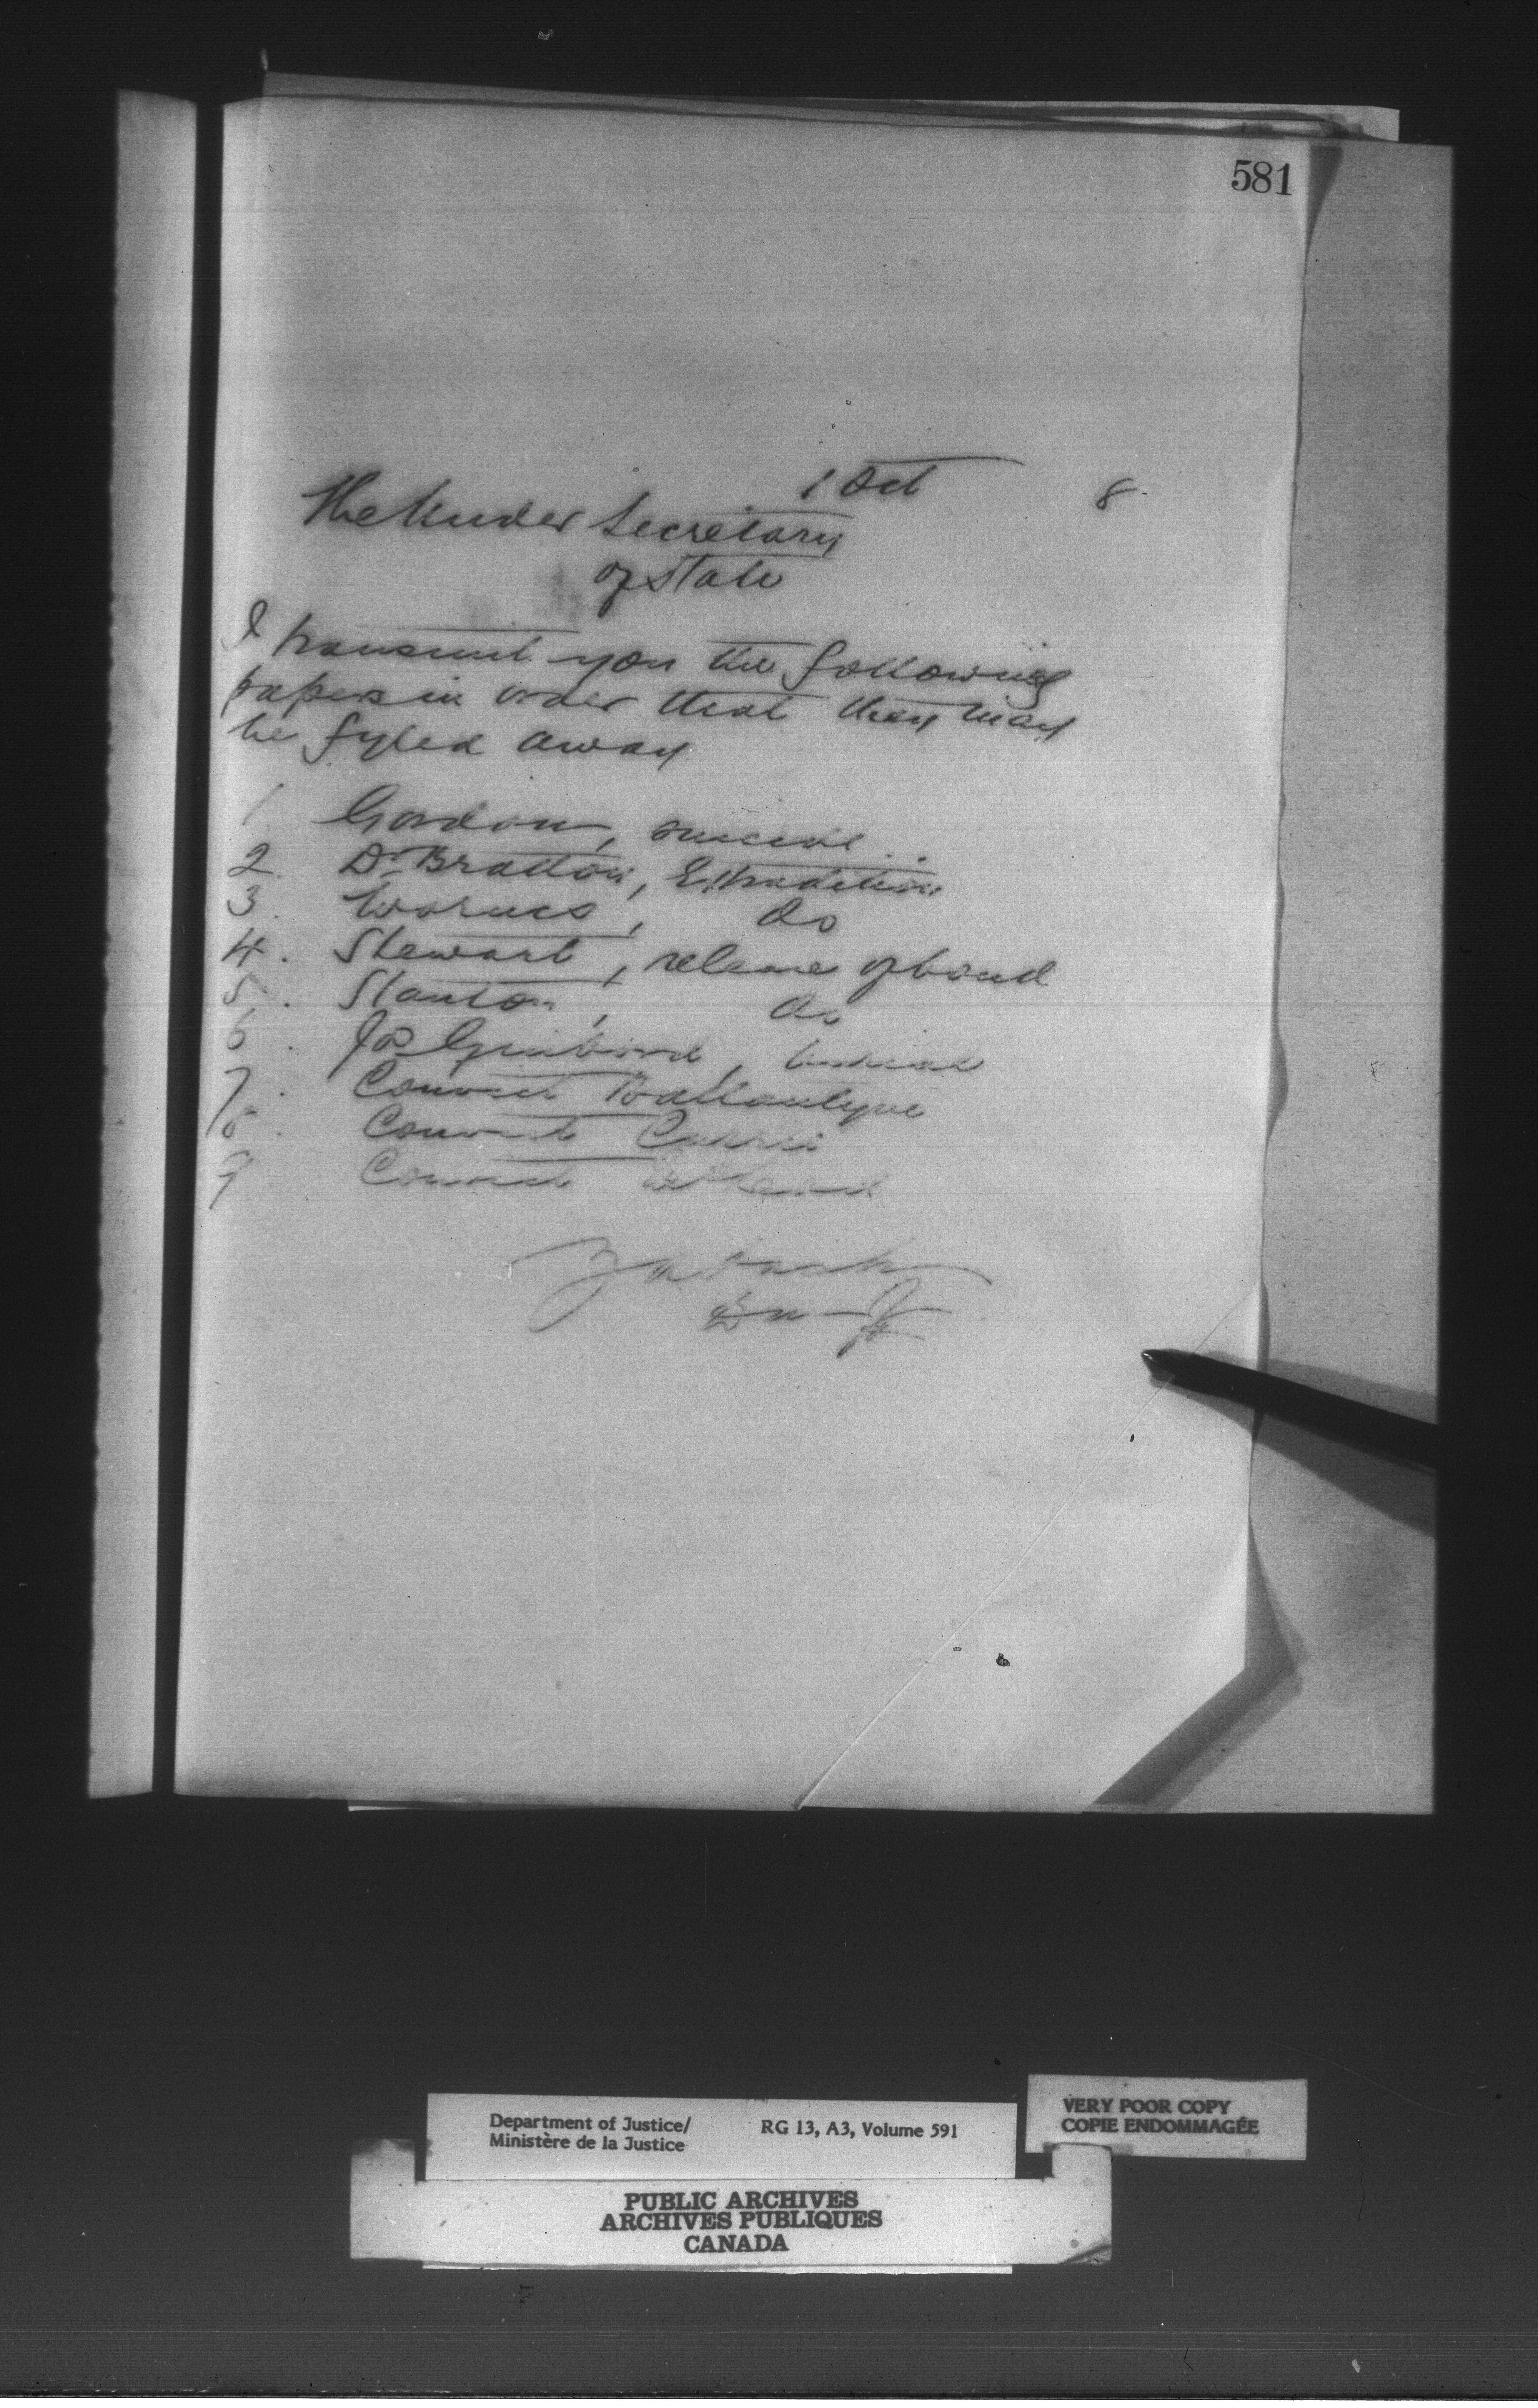 581
1 Oct 8
The Under Secretary
of State
I transmit you the following
papers in order that they may
be fyled away
1 Gordon, suicide
2. Dr Bratton, Extradition
3. Warnes, do
4. Stewart, release of bond
5. Stanton, do
6. Jos Guibord, burial
7. Convict Ballantyne
8. Convict Currie
9 Convict
Z A Lash
D M J
Department of Justice/
Ministère de la Justice
RG 13, A3, Volume 591
VERY POOR COPY
COPIE ENDOMMAGÉE
PUBLIC ARCHIVES
ARCHIVES PUBLIQUES
CANADA